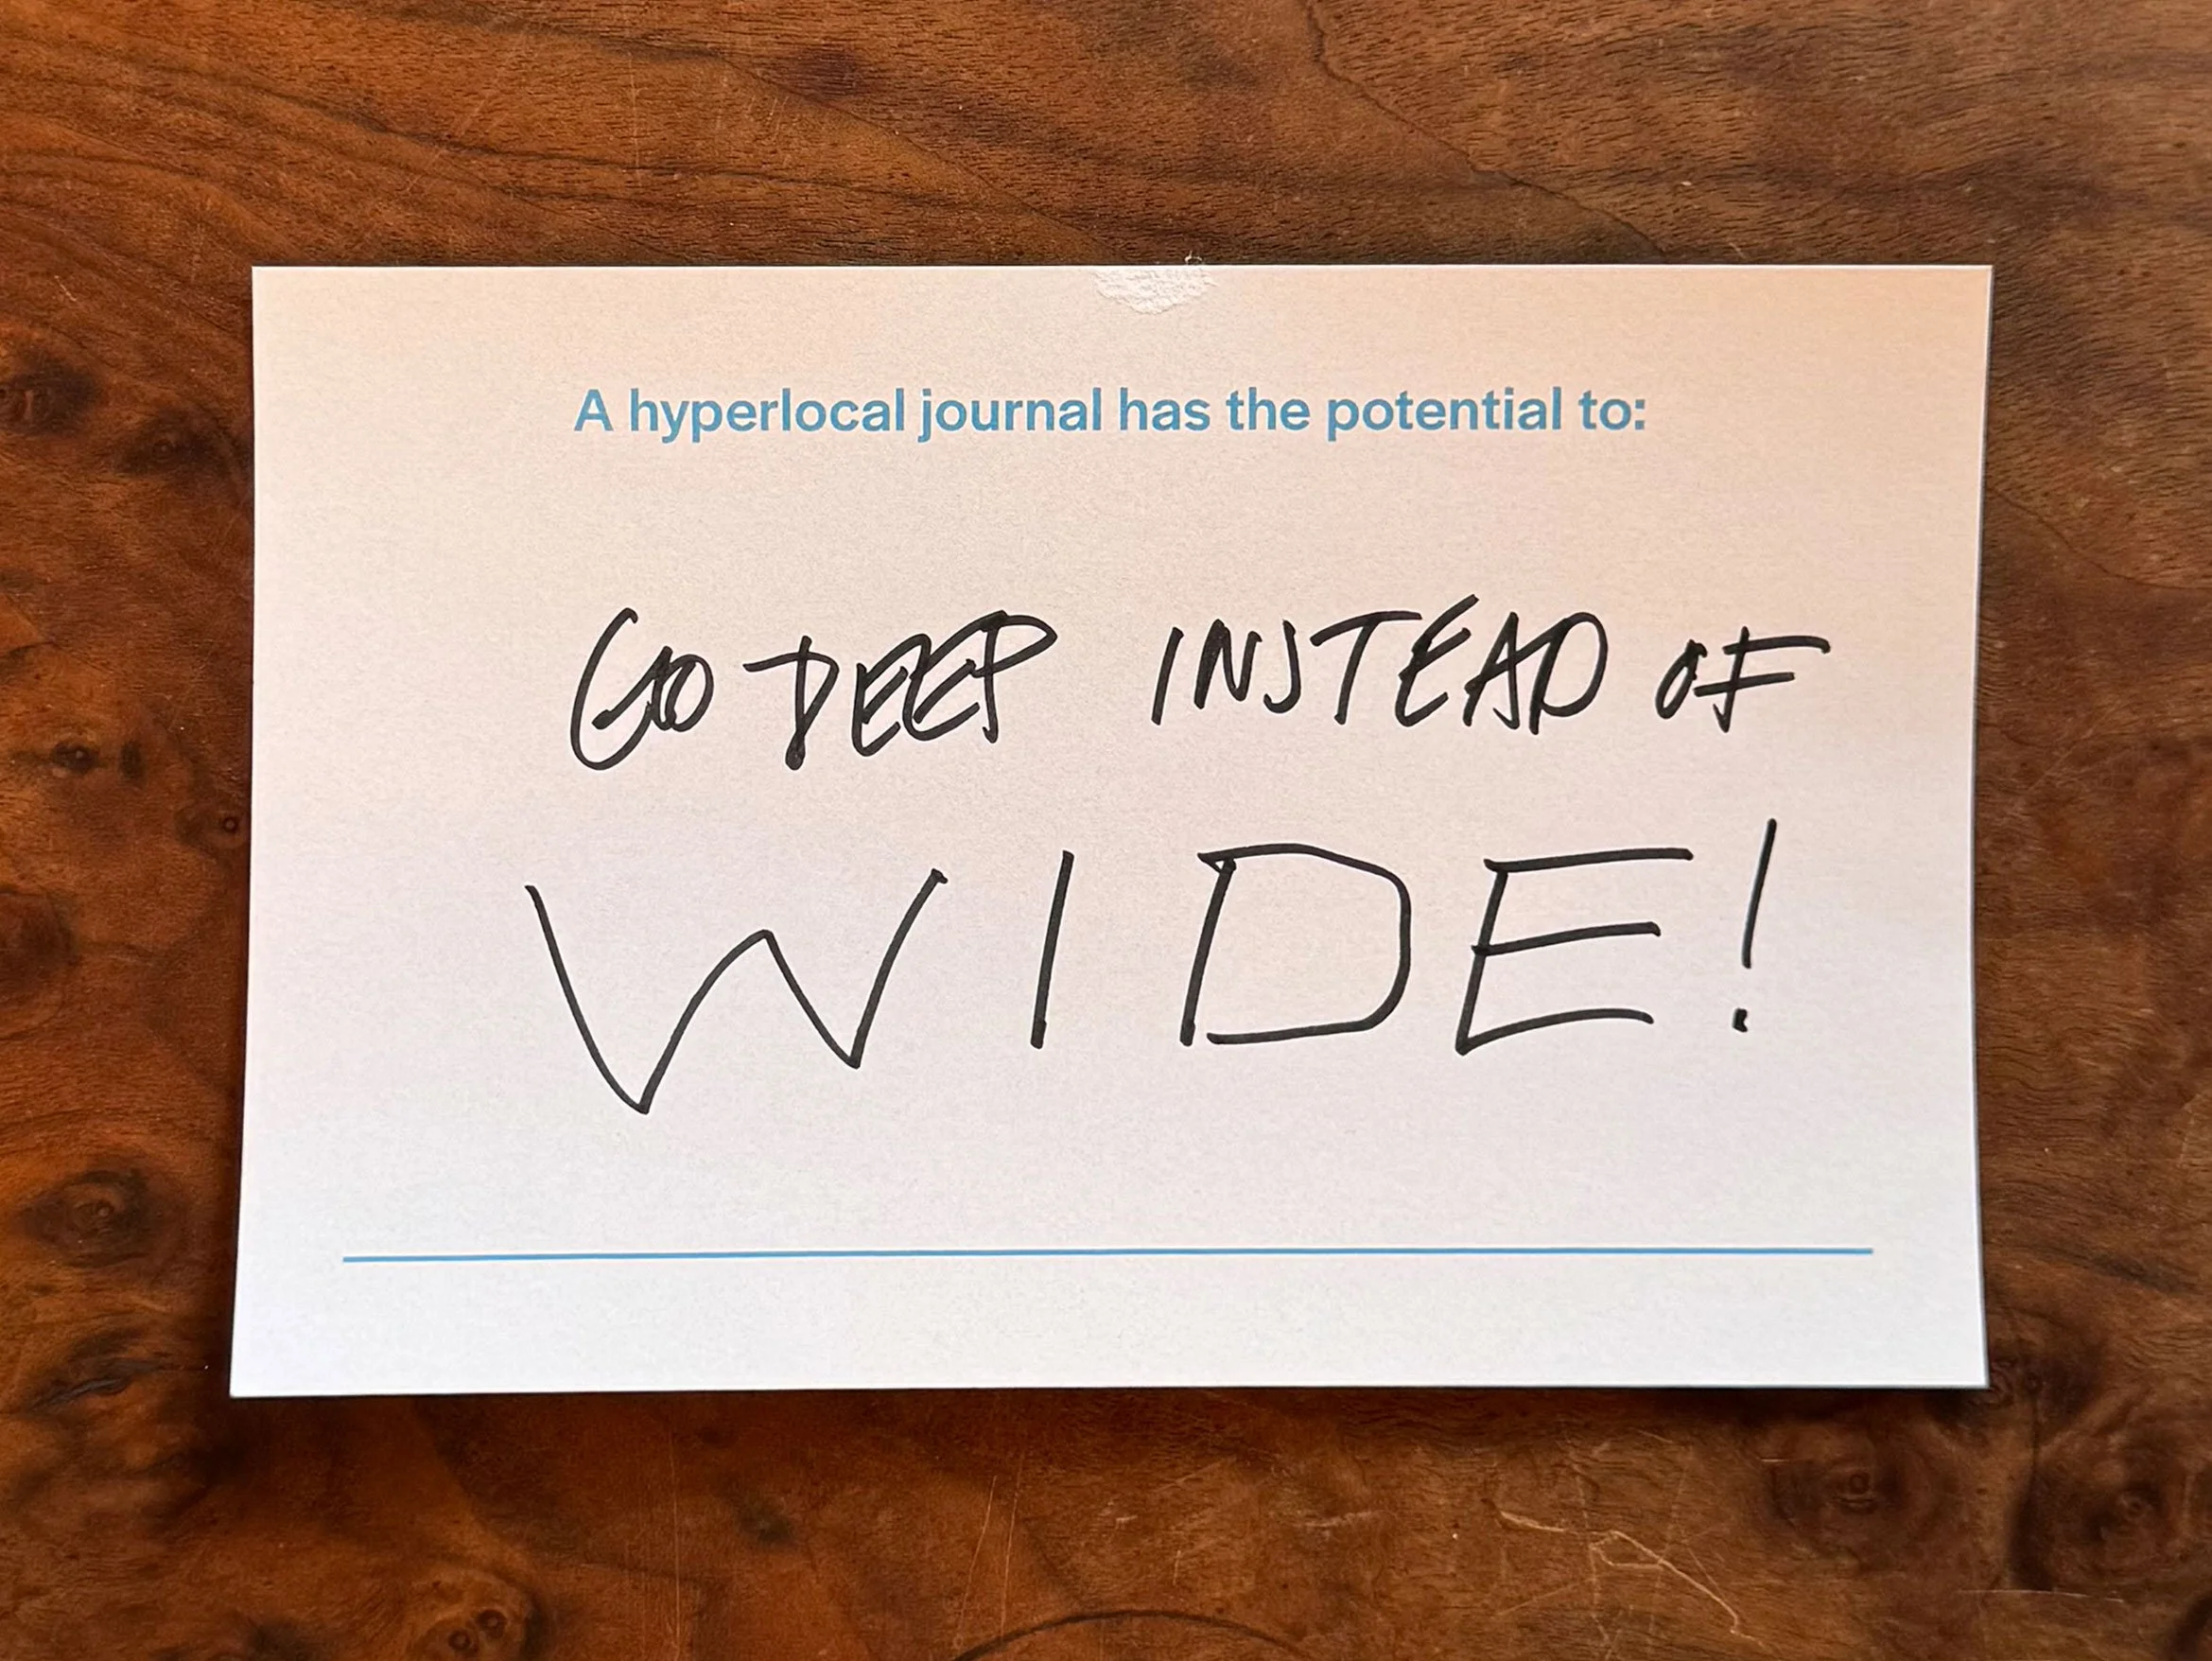 A hyperlocal journal has the potential to:
GO DEEP INSTEAD OF
WIDE!